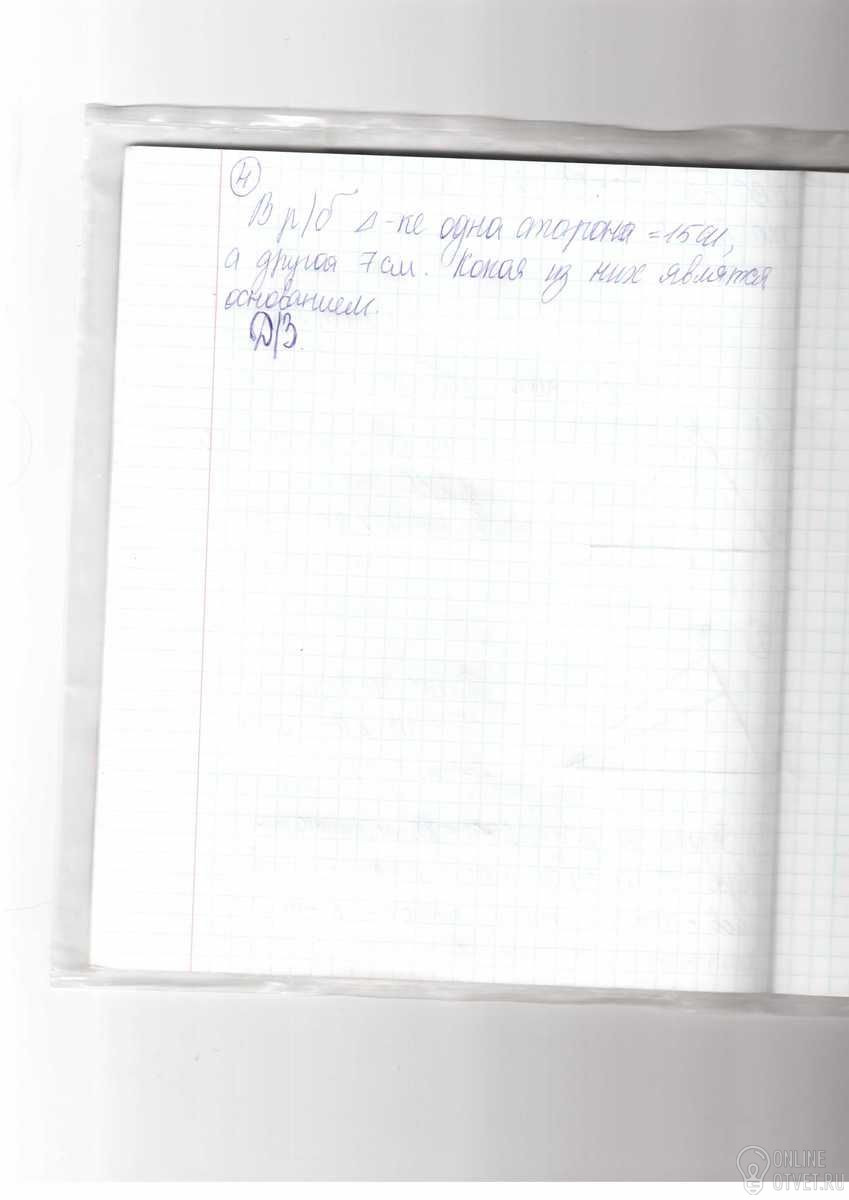 4
В р/б Δ-ке одна сторона = 15 см,
а другая 7 см. Какая из них являятся
основанием.
Д/З.
ONLINE
OTVET.RU